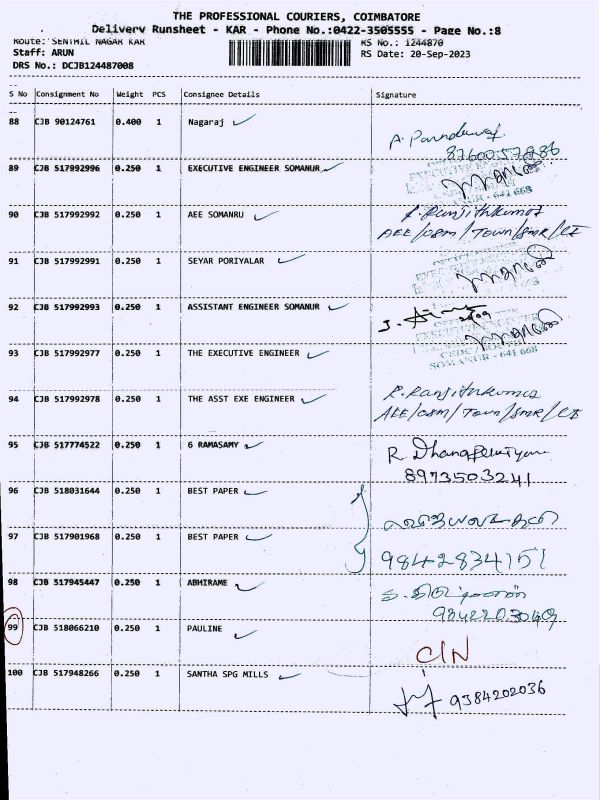 THE PROFESSIONAL COURIERS, COIMBATORE
Delivery Runsheet - KAR - Phone No.:0422-3505555 - Page No.:8
Route: SENTHIL NAGAR KAR
RS No.: 1244870
Staff: ARUN
RS Date: 20-Sep-2023
DRS No.: DCJB124487008
S No Consignment No Weight PCS Consignee Details Signature
88 CJB 90124761 0.400 1 Nagaraj
8760057886
89 CJB 517992996 0.250 1 EXECUTIVE ENGINEER SOMANUR
641 668
90 CJB 517992992 0.250 1 AEE SOMANRU R. Ranjithkumar
AEE/O&M/Town/SMR/CE
91 CJB 517992991 0.250 1 SEYAR PORIYALAR
92 CJB 517992993 0.250 1 ASSISTANT ENGINEER SOMANUR
EXECUTIVE ENGINEER
93 CJB 517992977 0.250 1 THE EXECUTIVE ENGINEER
SOMANUR - 641 668
94 CJB 517992978 0.250 1 THE ASST EXE ENGINEER R. Ranjithkumar
AEE/O&M/Town/SMR/CE
95 CJB 517774522 0.250 1 6 RAMASAMY R
8973503241
96 CJB 518031644 0.250 1 BEST PAPER
97 CJB 517901968 0.250 1 BEST PAPER
9842834151
98 CJB 517945447 0.250 1 ABHIRAME
99 CJB 518066210 0.250 1 PAULINE
C/N
100 CJB 517948266 0.250 1 SANTHA SPG MILLS
9384202036